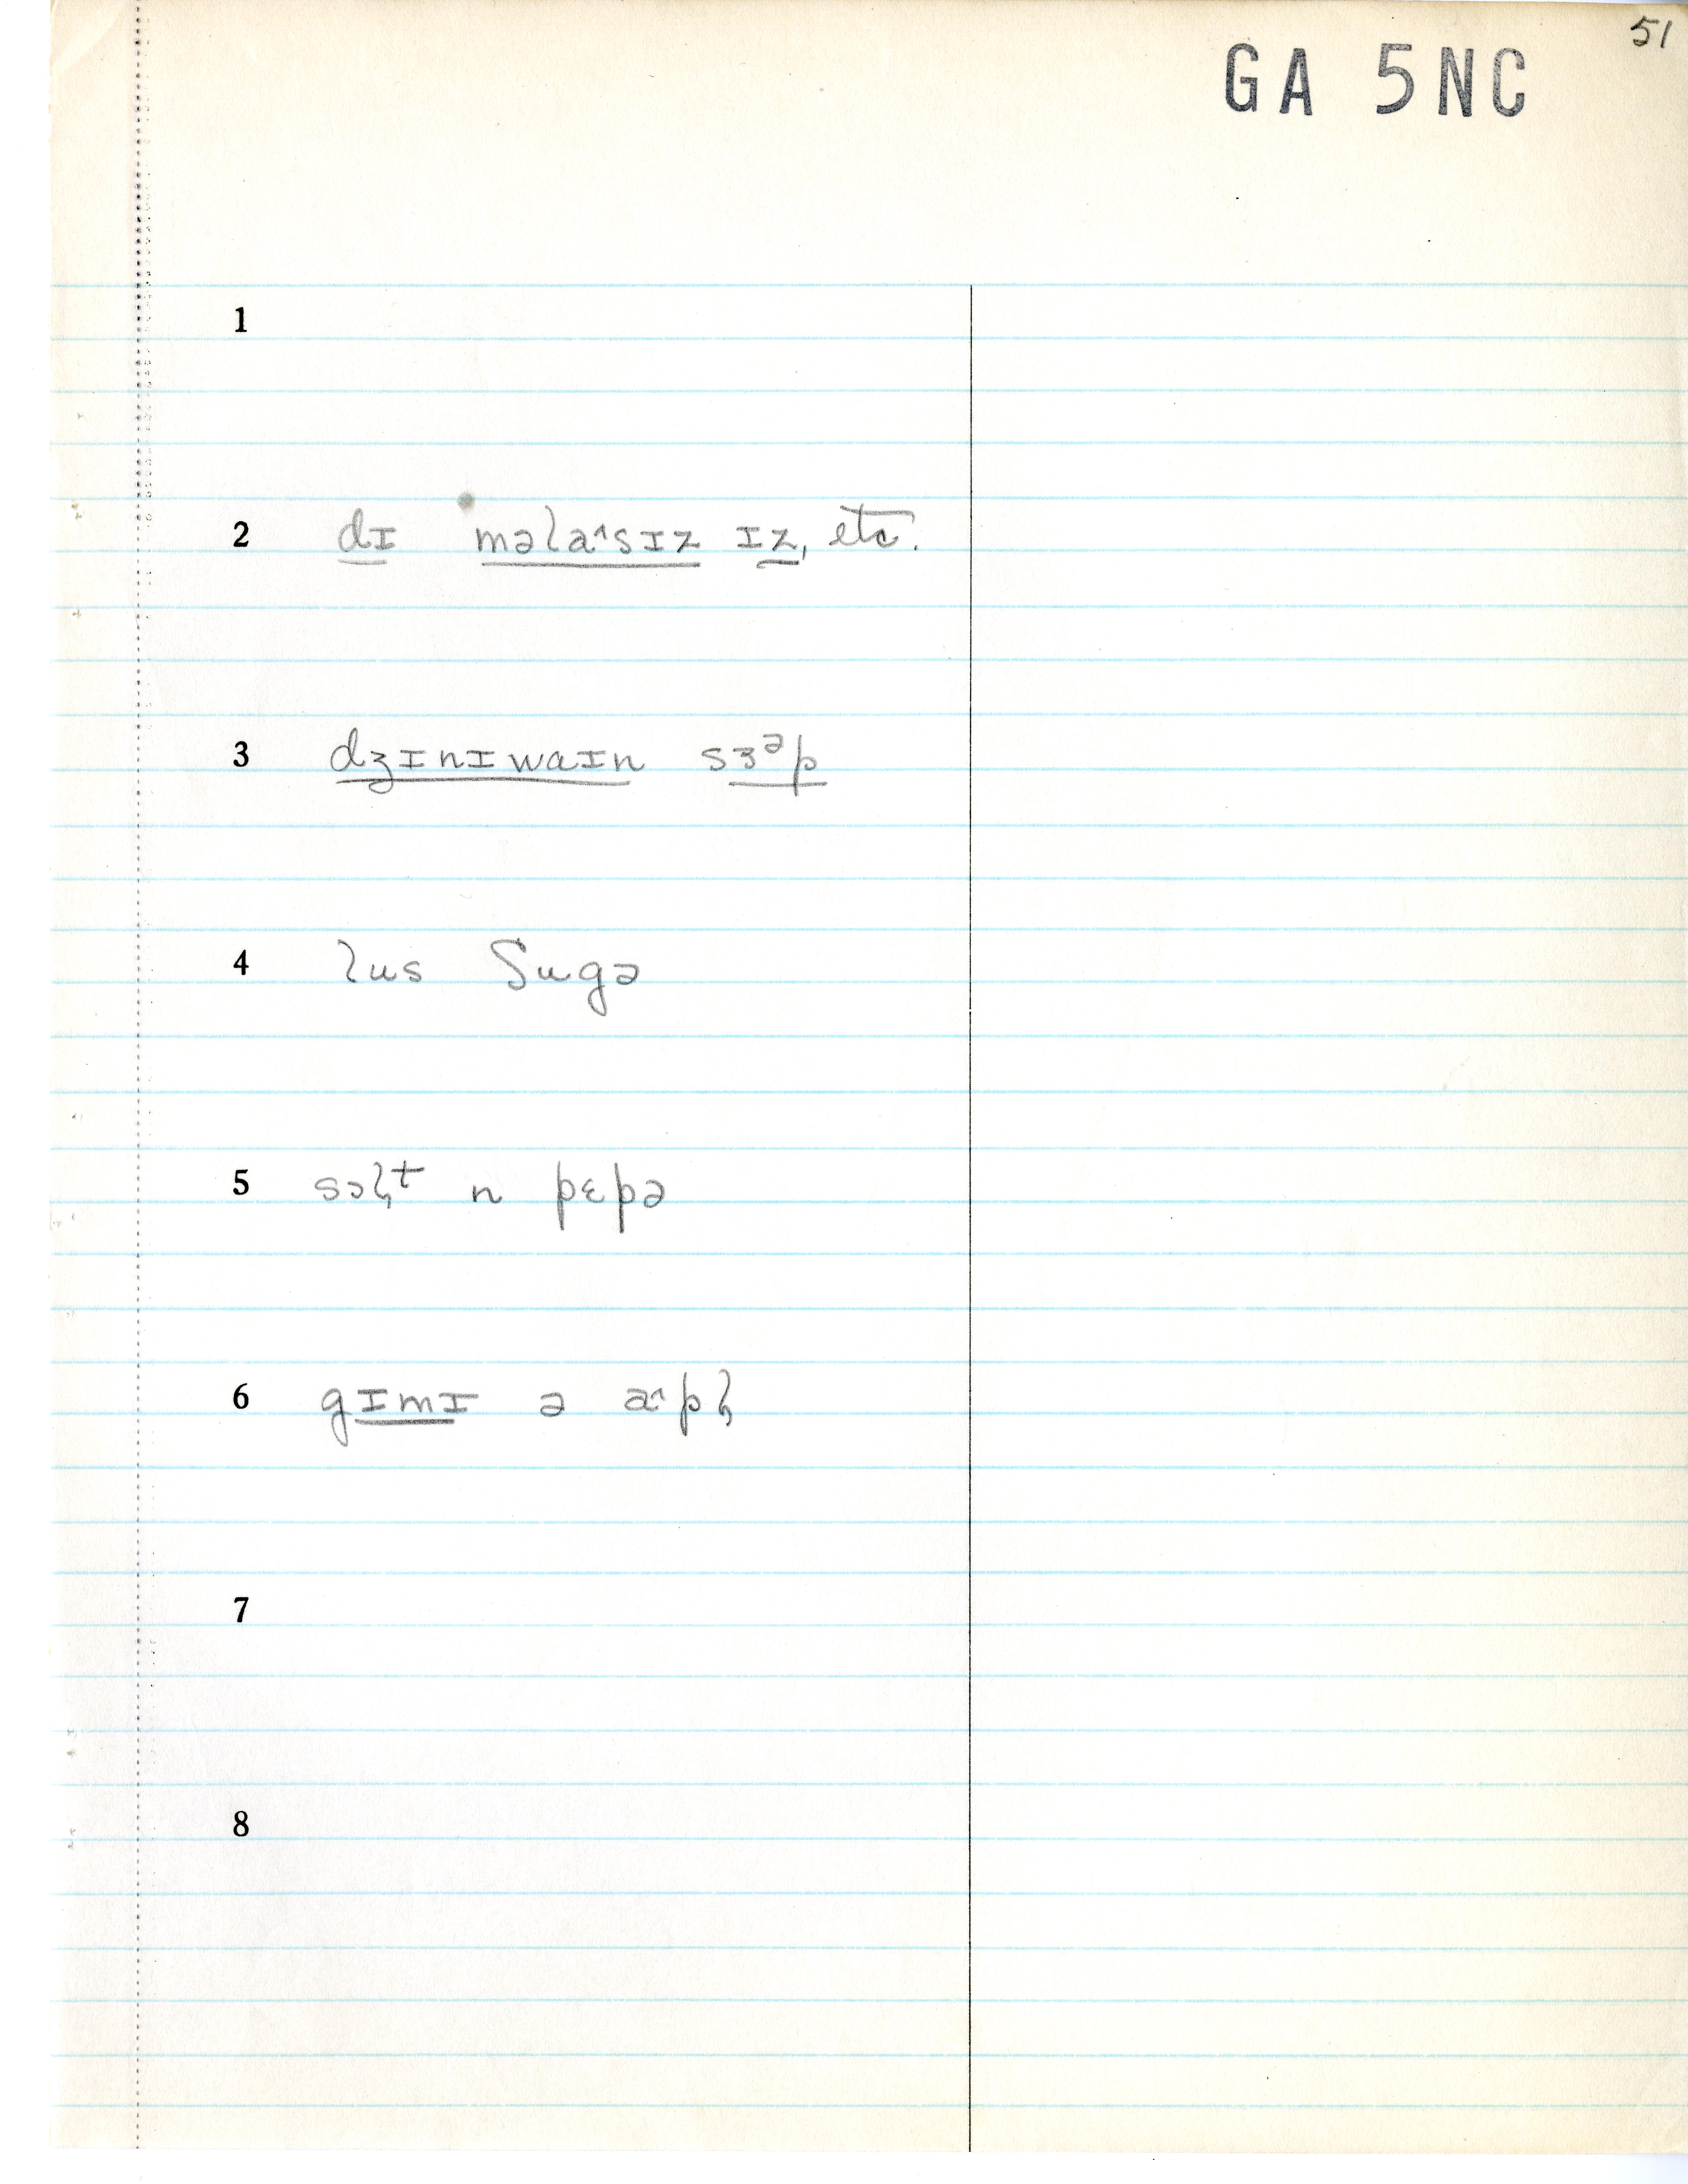 51
GA 5NC
1
2 dɪ məlaˆsɪz ɪz, etc.
3 dʒɪnɪwaɪn sɜᵊp
4 lus ʃugə
5 sɔl̩t n pɛpə
6 gɪmɪ ə aˆpl̩
7
8